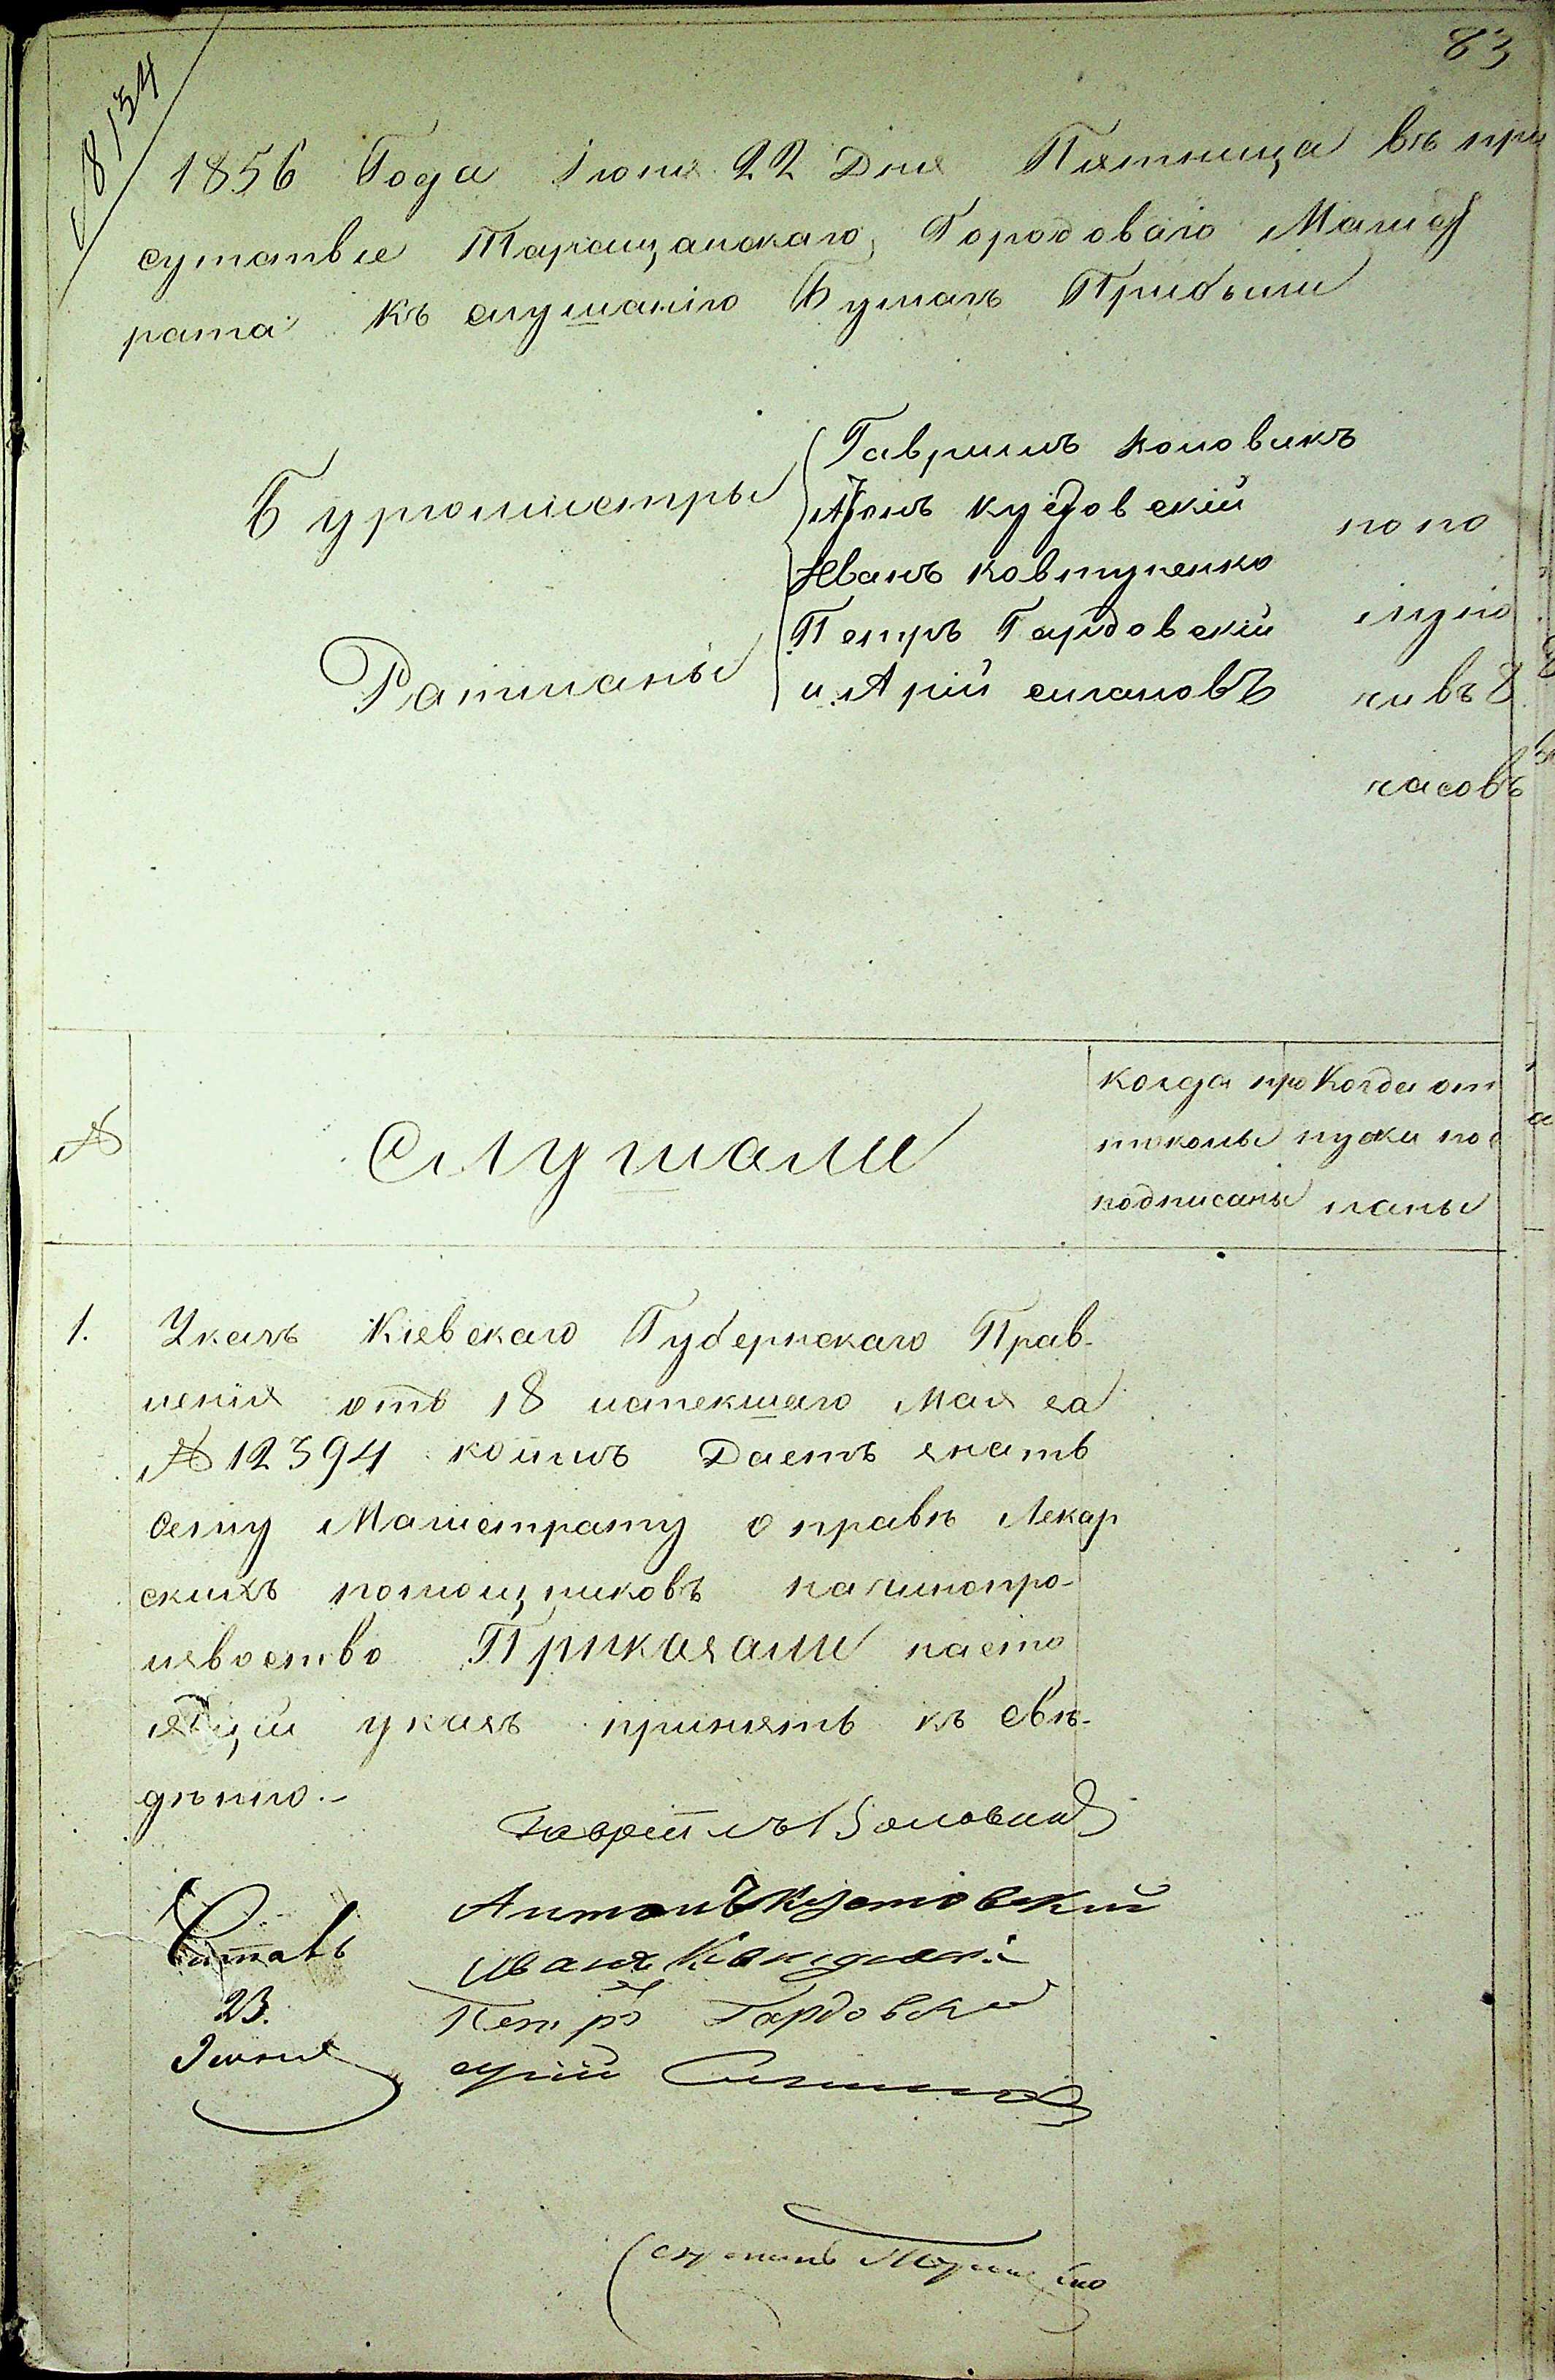 83
№ 8134
1856 Года Іюня 22 Дня Пятница въ при
сутствіе Таращанскаго Городоваго Магист
рата къ слушанію Бумагъ Прибыли
Бургомистры
Гаврилъ Коловикъ
Иванъ Ковтуненко
Петръ Гардовскій
Ратманы
и Арій
по по
луно
чи въ 8
часовъ
№
Слушали
Когда про
токолы
подписаны
Когда от
пуски пос
ланы
1. Указъ Кіевскаго Губернскаго Прав-
ленія отъ 18 истекшаго Мая за
№ 12394 коимъ Даетъ знать
сему Магистрату о правѣ Лекар
скихъ помощниковъ на чинопро-
изводство Приказали насто
ящій указъ принять къ свѣ-
дѣнію.-
Гавріилъ Коловик
Антонъ
Иванъ
Петръ Гардовскій
Арій
Читалъ
23.
Іюня